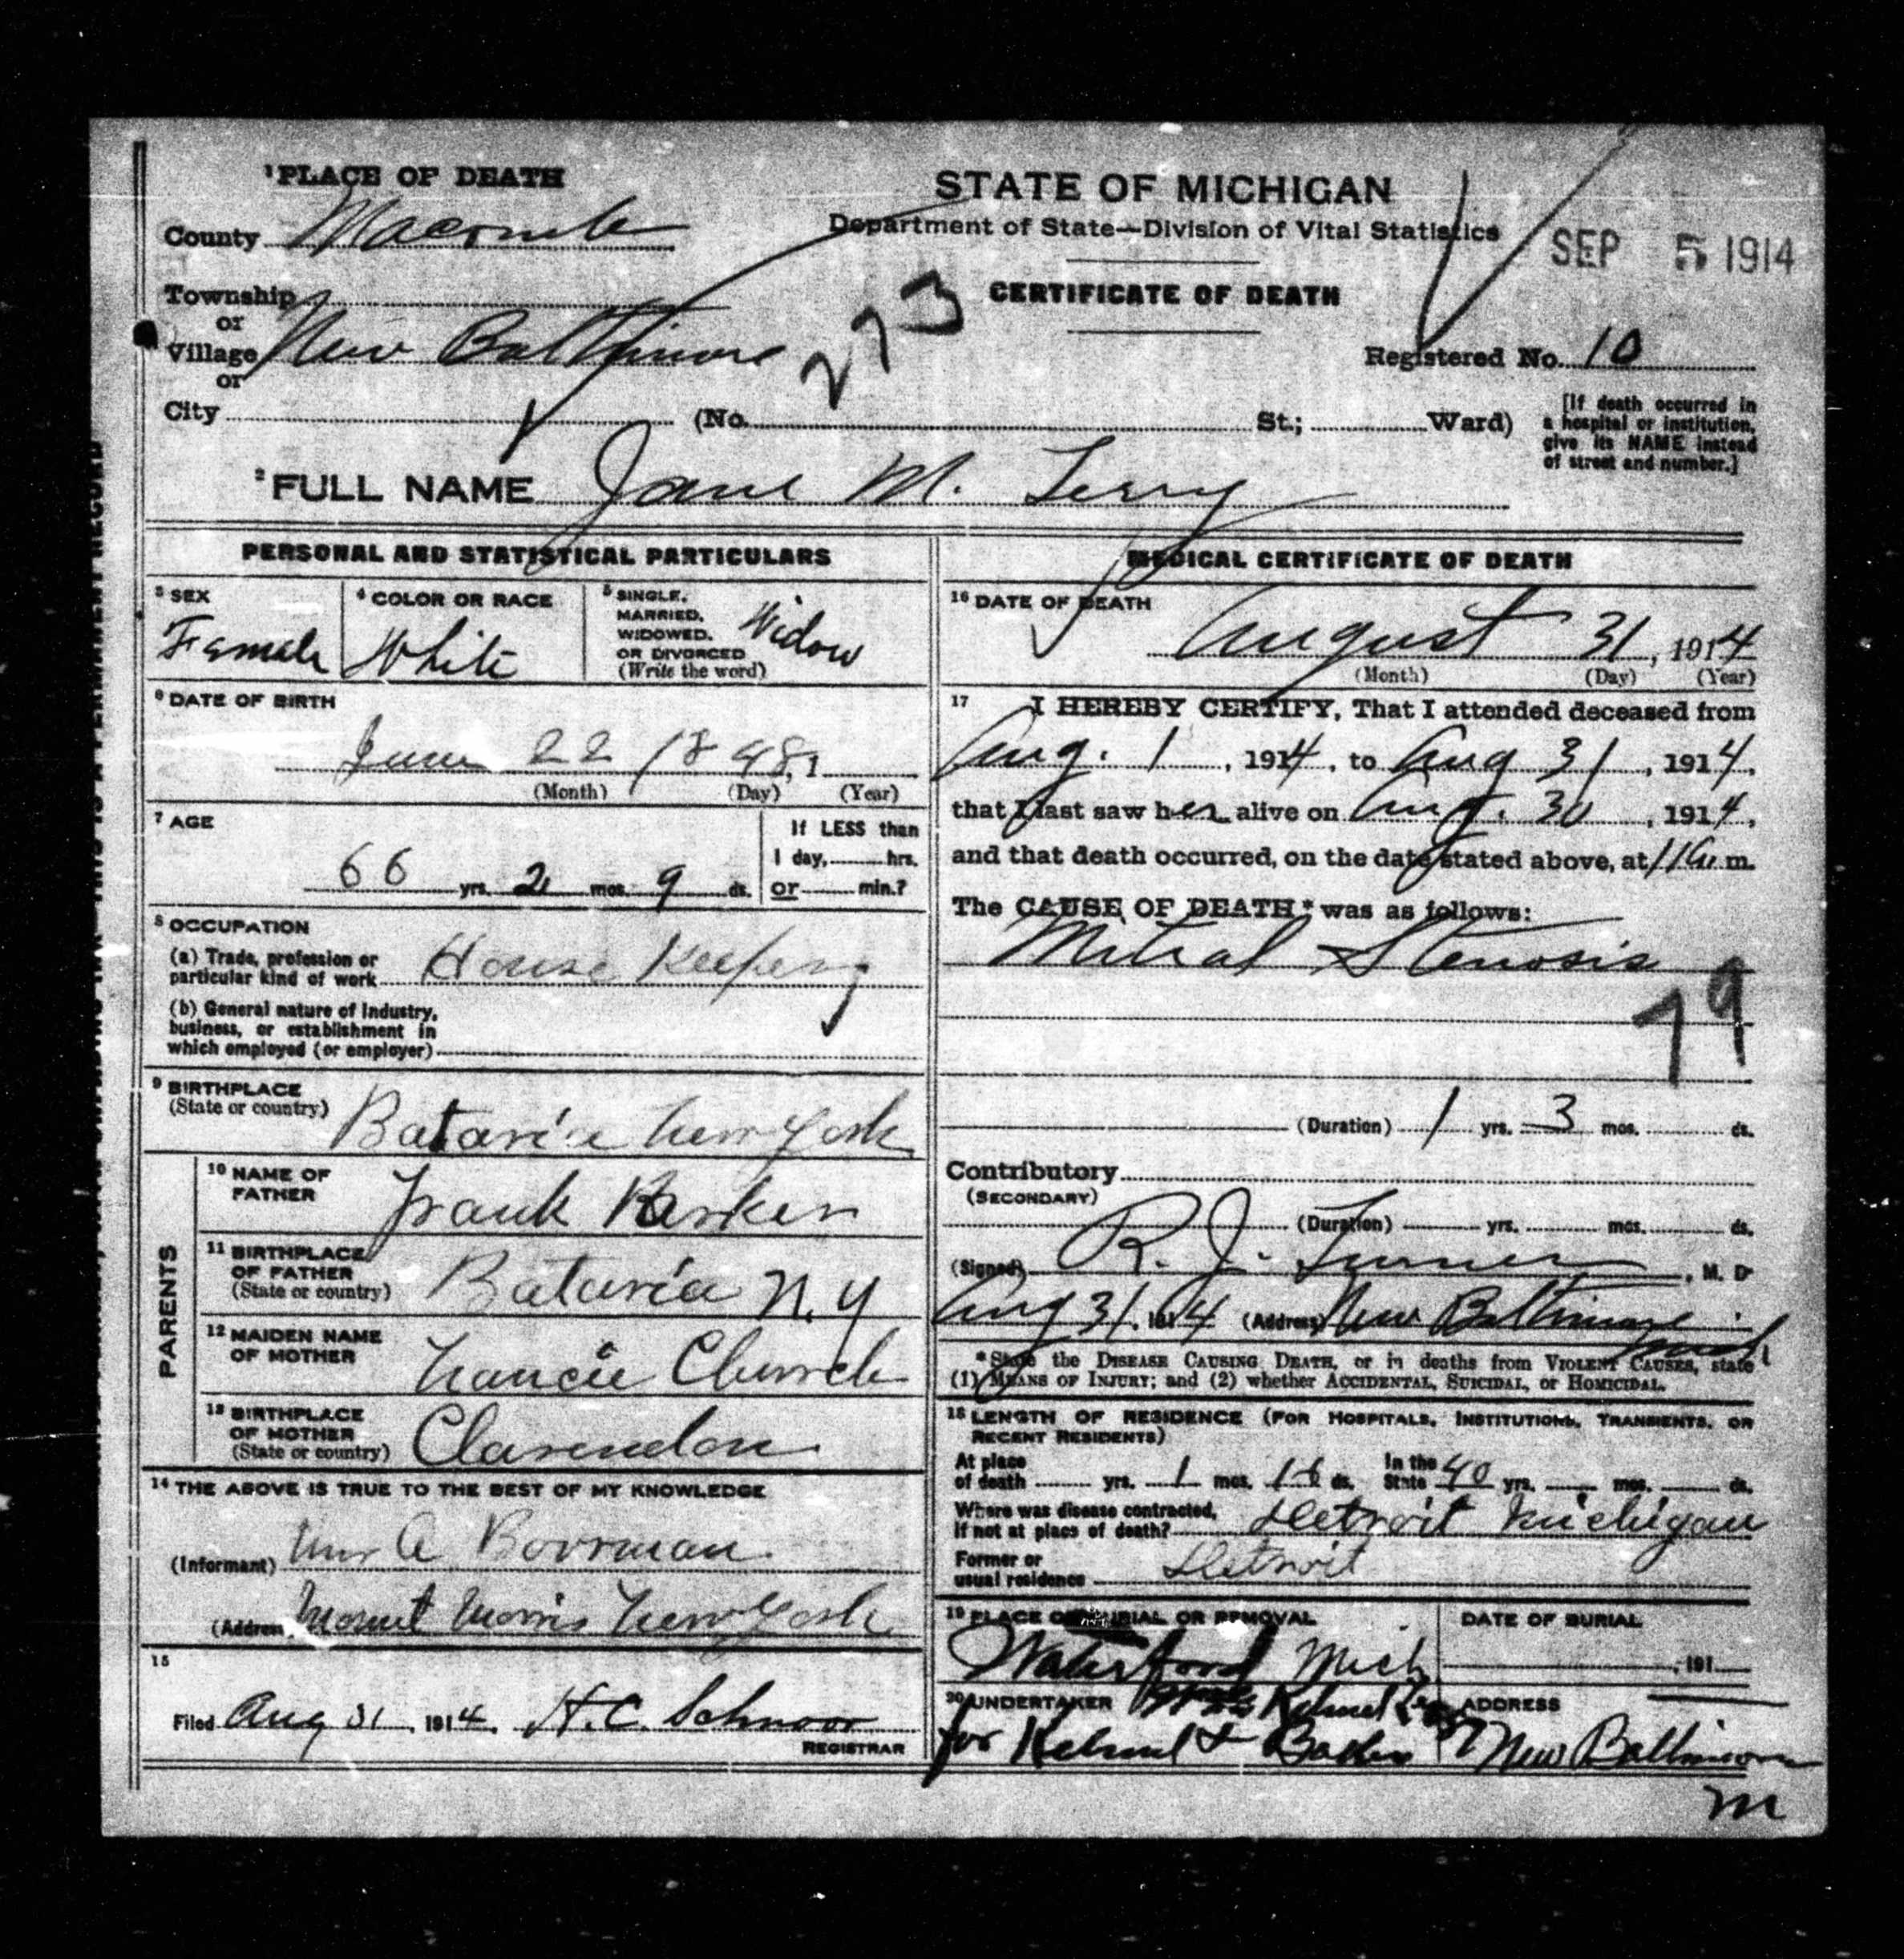 1 PLACE OF DEATH
County Macomb
Township
or
Village New Baltimore
or
City (No. St.; Ward)
STATE OF MICHIGAN
Department of State—Division of Vital Statistics
CERTIFICATE OF DEATH
SEP 5 1914
273
Registered No. 10
[If death occurred in
a hospital or institution,
give its NAME instead
of street and number.]
2 FULL NAME Jane M. Terry
PERSONAL AND STATISTICAL PARTICULARS
3 SEX
Female
4 COLOR OR RACE
White
5 SINGLE,
MARRIED,
WIDOWED,
OR DIVORCED
(Write the word)
Widow
6 DATE OF BIRTH
June 22 1848, 1
(Month) (Day) (Year)
7 AGE
66 yrs. 2 mos. 9 ds.
If LESS than
1 day, hrs.
or min.?
8 OCCUPATION
(a) Trade, profession or
particular kind of work House Keeping
(b) General nature of industry,
business, or establishment in
which employed (or employer)
9 BIRTHPLACE
(State or country) Batavia New York
PARENTS
10 NAME OF
FATHER Frank Parker
11 BIRTHPLACE
OF FATHER
(State or country) Batavia N. Y
12 MAIDEN NAME
OF MOTHER Nancie Church
13 BIRTHPLACE
OF MOTHER
(State or country) Clarendon
14 THE ABOVE IS TRUE TO THE BEST OF MY KNOWLEDGE
(Informant) Mrs A Boorman
(Address) Mount Morris New York
15
Filed Aug 31, 1914. H. C. Schnoor
REGISTRAR
MEDICAL CERTIFICATE OF DEATH
16 DATE OF DEATH
August 31, 1914
(Month) (Day) (Year)
17 I HEREBY CERTIFY, That I attended deceased from
Aug. 1, 1914, to Aug 31, 1914,
that I last saw her alive on Aug. 30, 1914,
and that death occurred, on the date stated above, at 11 a. m.
The CAUSE OF DEATH* was as follows:
Mitral Stenosis
79
(Duration) 1 yrs. 3 mos. ds.
Contributory
(SECONDARY)
(Duration) yrs. mos. ds.
(Signed) R. J. Turner, M. D
Aug 31, 1914 (Address) New Baltimore
Mich
*State the DISEASE CAUSING DEATH, or in deaths from VIOLENT CAUSES, state
(1) MEANS OF INJURY; and (2) whether ACCIDENTAL, SUICIDAL, or HOMICIDAL.
18 LENGTH OF RESIDENCE (FOR HOSPITALS, INSTITUTIONS, TRANSIENTS, OR
RECENT RESIDENTS)
At place
of death yrs. 1 mos. 16 ds.
In the
State 40 yrs. mos. ds.
Where was disease contracted,
if not at place of death? Detroit Michigan
Former or
usual residence Detroit
19 PLACE OF BURIAL OR REMOVAL
Waterford Mich
DATE OF BURIAL
, 191
20 UNDERTAKER
for
ADDRESS
New Baltimore
m